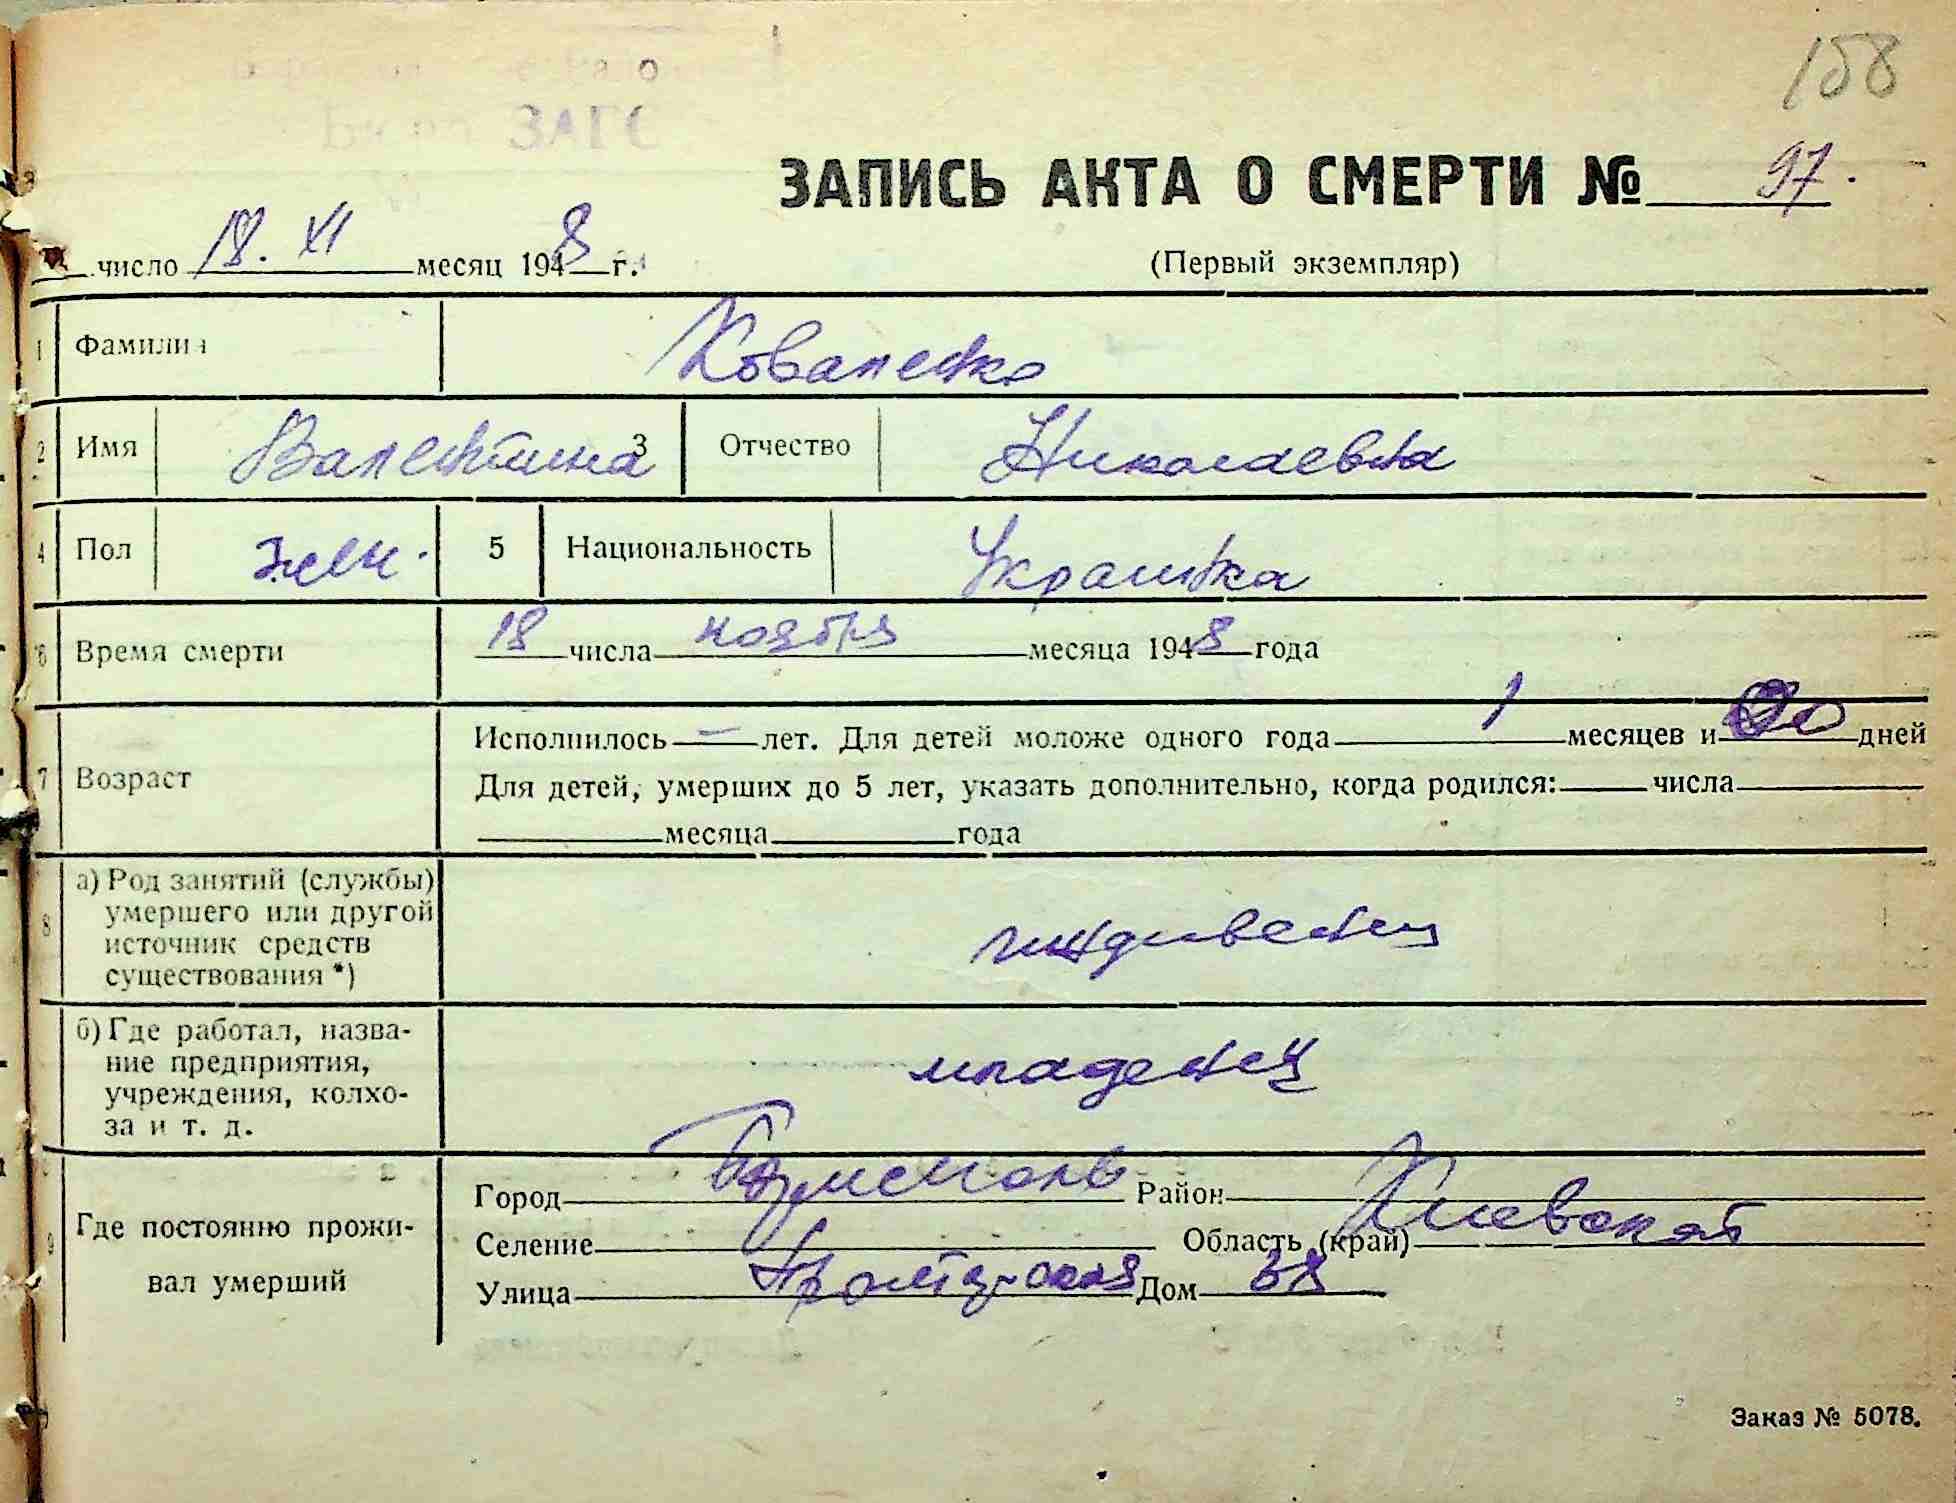 158
Бюро ЗАГС
ЗАПИСЬ АКТА О СМЕРТИ № 97.
число 18. XI месяц 1948 г. (Первый экземпляр)
1 Фамилия Коваленко
2 Имя Валентина 3 Отчество Николаевна
4 Пол жен. 5 Национальность Украинка
6 Время смерти 18 числа ноября месяца 1948 года
Исполнилось — лет. Для детей моложе одного года 1 месяцев и 20 дней
7 Возраст Для детей, умерших до 5 лет, указать дополнительно, когда родился: числа
месяца года
8 а) Род занятий (службы)
умершего или другой
источник средств
существования *)
иждивенец
б) Где работал, назва-
ние предприятия,
учреждения, колхо-
за и т. д.
младенец
9 Где постоянно прожи-
вал умерший
Город Борисполь Район
Селение Область (край) Киевской
Улица Дом 38
Заказ № 5078.